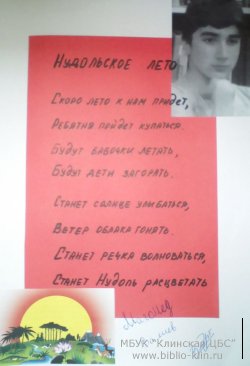 Нудольское лето
Скоро лето к нам придет,
Ребятня пойдет купаться.
Будут бабочки летать,
Будут дети загорать.
Станет солнце улыбаться,
Ветер облака гонять.
Станет речка волноваться,
Станет Нудоль расцветать
МБУК "Клинская ЦБС"
www.biblio-klin.ru